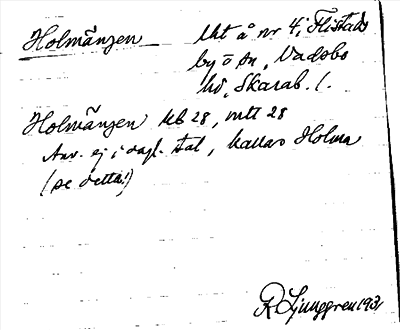 Holmängen Utt å nr 4 i Flistads
by ö sn, Vadsbo
hd, Skarab. l.
Holmängen Ub 28, utt 28
Anv. ej i dagl. tal, kallas Holma
(se detta!)
R Ljunggren 1931